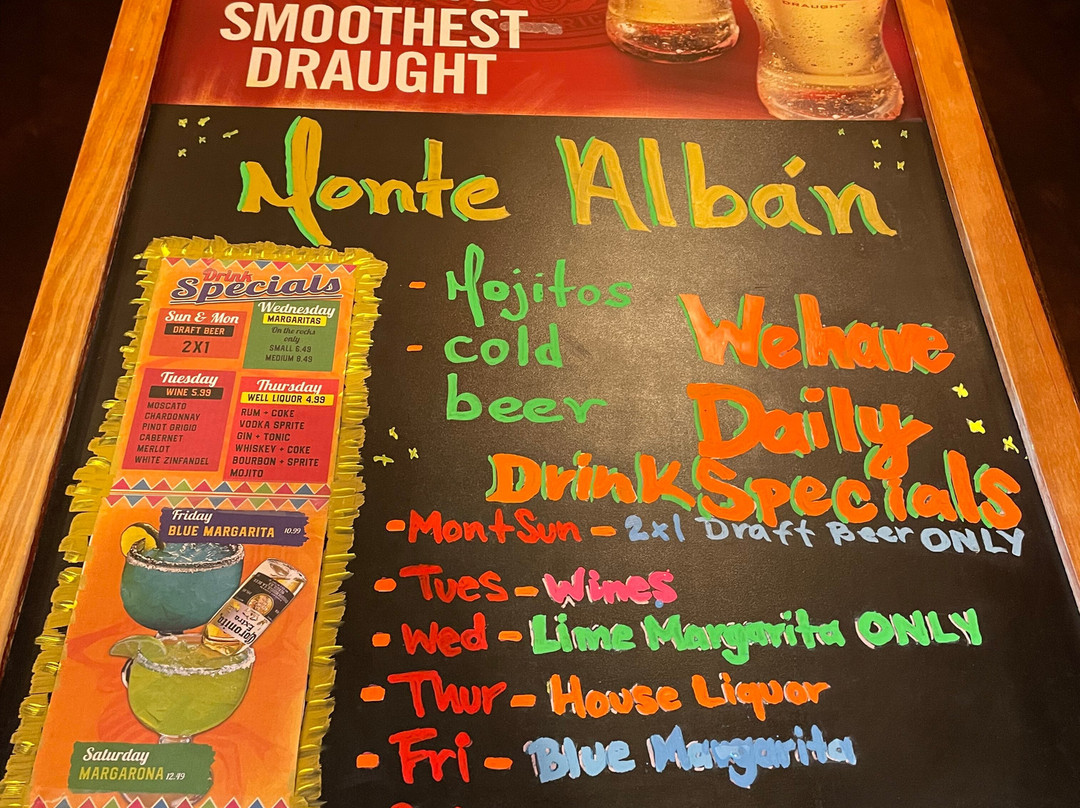 SMOOTHEST
DRAUGHT
DRAUGHT
Monte Albán
- Mojitos
- cold
beer
We have
Daily
Drink Specials
- Mon + Sun - 2x1 Draft Beer ONLY
- Tues - Wines
- Wed - Lime Margarita ONLY
- Thur - House Liquor
- Fri - Blue Margarita
Drink
Specials
Sun & Mon
DRAFT BEER
2X1
Wednesday
MARGARITAS
On the rocks
only
SMALL 6.49
MEDIUM 8.49
Tuesday
WINE 5.99
MOSCATO
CHARDONNAY
PINOT GRIGIO
CABERNET
MERLOT
WHITE ZINFANDEL
Thursday
WELL LIQUOR 4.99
RUM + COKE
VODKA SPRITE
GIN + TONIC
WHISKEY + COKE
BOURBON + SPRITE
MOJITO
Friday
BLUE MARGARITA 10.99
Coronita
Extra
Saturday
MARGARONA 12.49